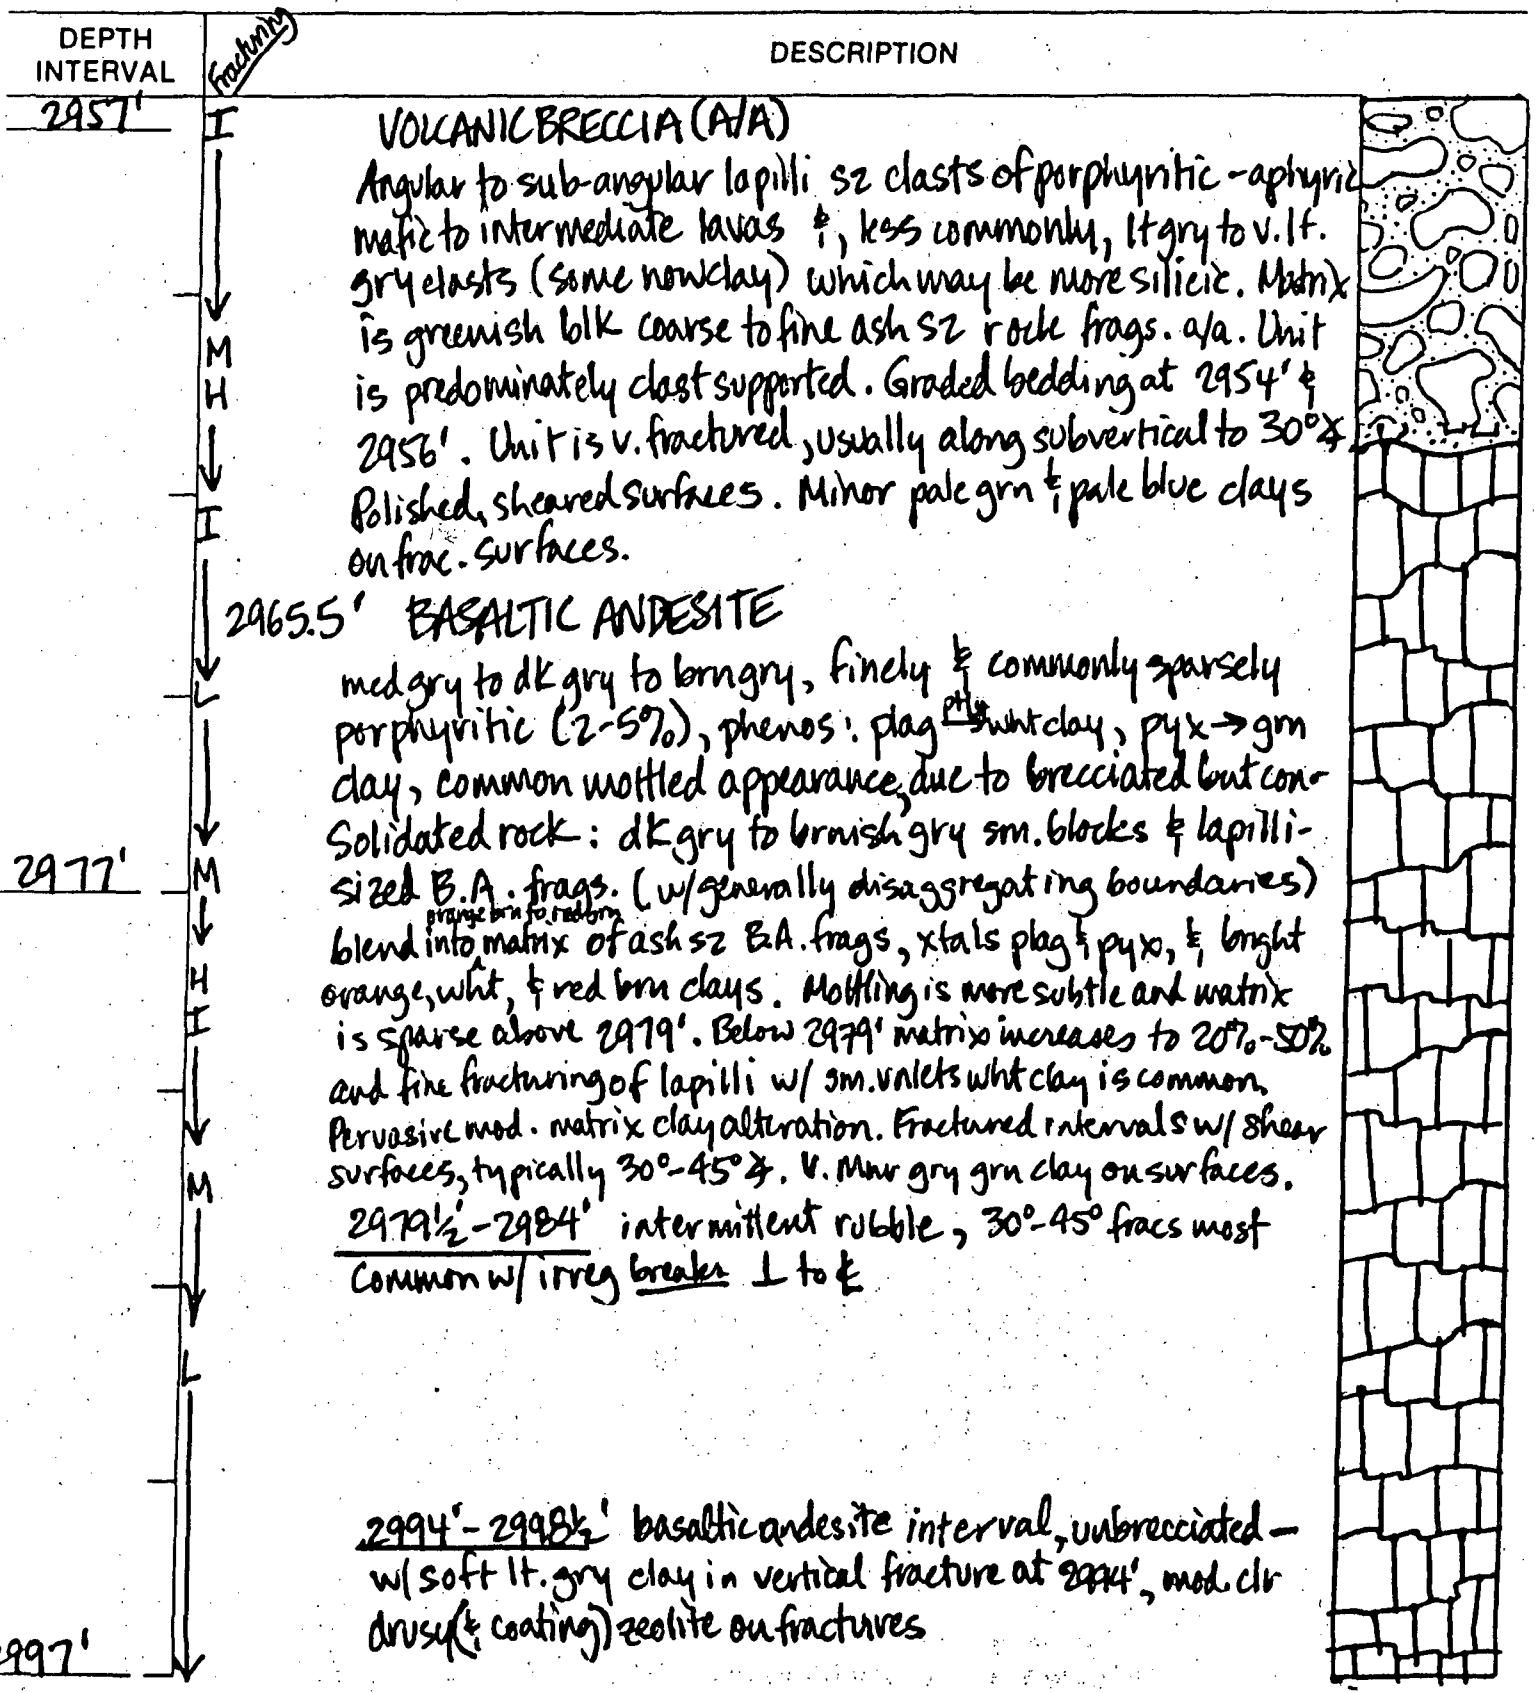 DEPTH INTERVAL
Fracturing
DESCRIPTION
2957'
I
VOLCANIC BRECCIA (A/A)
Angular to sub-angular lapilli sz clasts of porphyritic - aphyric
mafic to intermediate lavas &, less commonly, lt gry to v. lt.
gry clasts (some now clay) which may be more silicic. Matrix
is greenish blk coarse to fine ash sz rock frags. a/a. Unit
M
is predominately clast supported. Graded bedding at 2954' &
H
2956'. Unit is v. fractured, usually along subvertical to 30°∡
Polished, sheared surfaces. Minor pale grn & pale blue clays
I
on frac. surfaces.
2965.5' BASALTIC ANDESITE
med gry to dk gry to brn gry, finely & commonly sparsely
L
porphyritic (2-5%), phenos: plag ptly→ wht clay, pyx → grn
clay, common mottled appearance, due to brecciated but con-
solidated rock: dk gry to brnish gry sm. blocks & lapilli-
2977'
M
sized B.A. frags. (w/ generally disaggregating boundaries)
orange brn to red brn
blend into ^ matrix of ash sz B.A. frags, xtals plag & pyx, & bright
H
orange, wht, & red brn clays. Mottling is more subtle and matrix
I
is sparse above 2979'. Below 2979' matrix increases to 20%-50%
and fine fracturing of lapilli w/ sm. vnlets wht clay is common.
Pervasive mod. matrix clay alteration. Fractured intervals w/ shear
surfaces, typically 30°-45°∡. V. Mnr gry grn clay on surfaces.
M
2979½'-2984' intermittent rubble, 30°-45° fracs most
common w/ irreg breaks ⊥ to ȼ
L
2994'-2998½' basaltic andesite interval, unbrecciated -
w/ soft lt. gry clay in vertical fracture at 2994', mod. clr
drusy (& coating) zeolite on fractures
997'